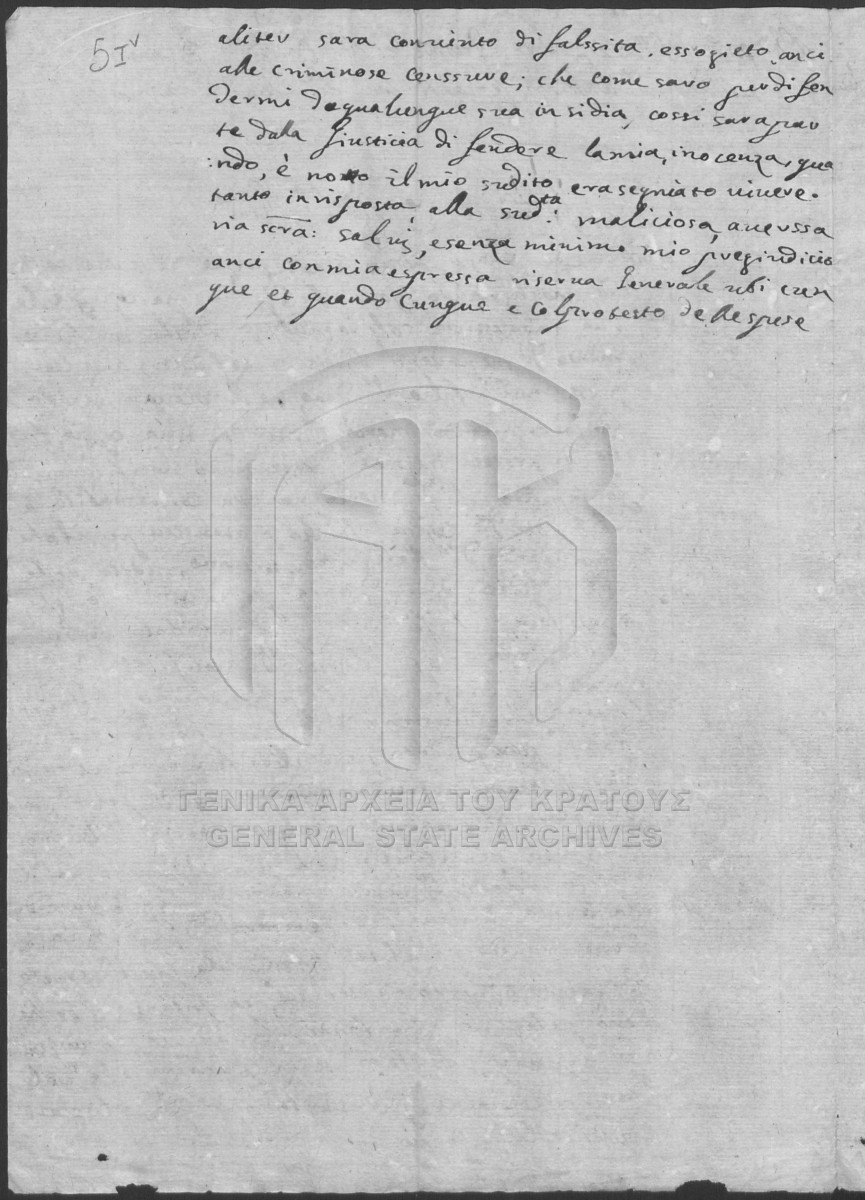 51v
aliter sara conuinto di falssita, essogieto, anci
alle criminose censsure; che come saro per difen
dermi da qualunque sua insidia, cossi sara par
te dalla Giusticia difendere la mia, inocenza, qua
:ndo, è noto il mio sudito e rasegniato uiuere.
tanto in risposta, alla sud:ta maliciosa, auerssa
ria scra: saluis, e senza minimo mio pregiudicio
anci con mia espressa riserua Generale ubi cun
que, et quando Cunque e col protesto delle spese
ΓΕΝΙΚΑ ΑΡΧΕΙΑ ΤΟΥ ΚΡΑΤΟΥΣ
GENERAL STATE ARCHIVES